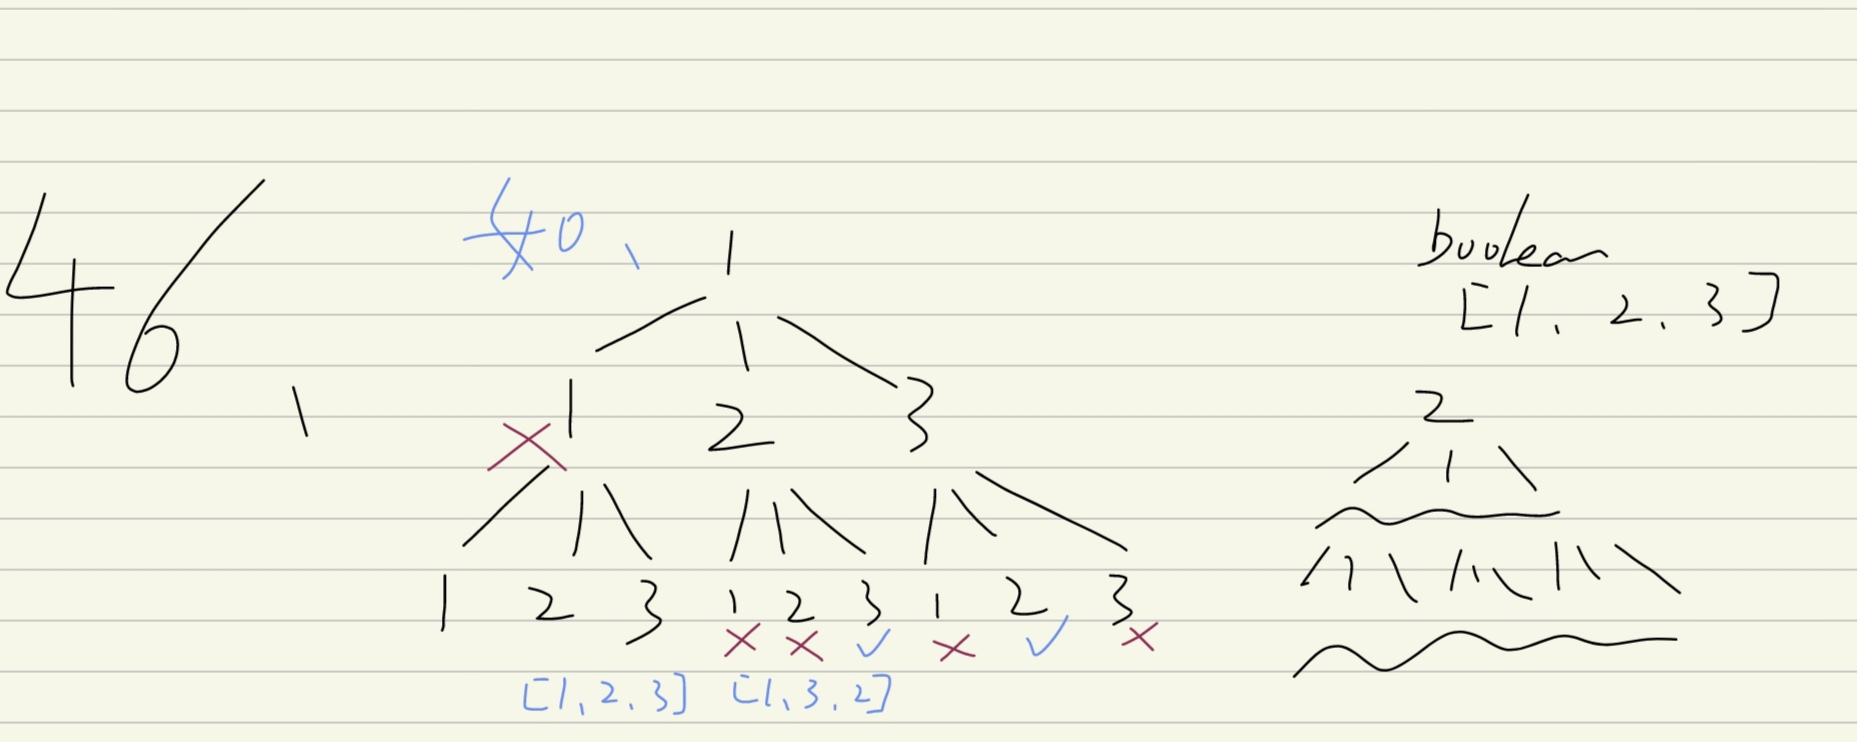 46、
40、
1
1 2 3
1 2 3 1 2 3 1 2 3
[1,2,3] [1,3,2]
boolean
[1, 2, 3]
2